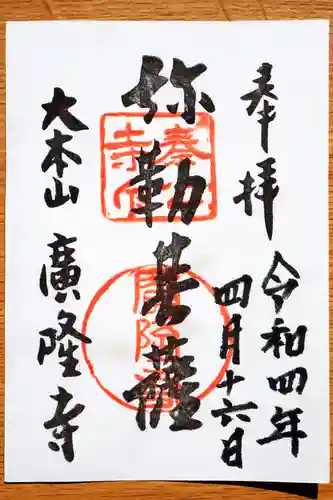 奉拝
令和四年
四月十六日
弥勒菩薩
大本山
廣隆寺